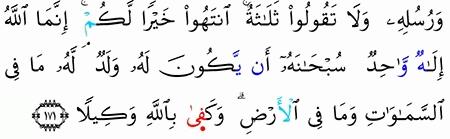 وَرُسُلِهِۦ وَلَا تَقُولُوا۟ ثَلَـٰثَةٌ ۚ ٱنتَهُوا۟ خَيْرًا لَّكُمْ ۚ إِنَّمَا ٱللَّهُ
إِلَـٰهٌ وَٰحِدٌ ۖ سُبْحَـٰنَهُۥٓ أَن يَكُونَ لَهُۥ وَلَدٌ ۘ لَّهُۥ مَا فِى
ٱلسَّمَـٰوَٰتِ وَمَا فِى ٱلْأَرْضِ ۗ وَكَفَىٰ بِٱللَّهِ وَكِيلًا ﴿١٧١﴾